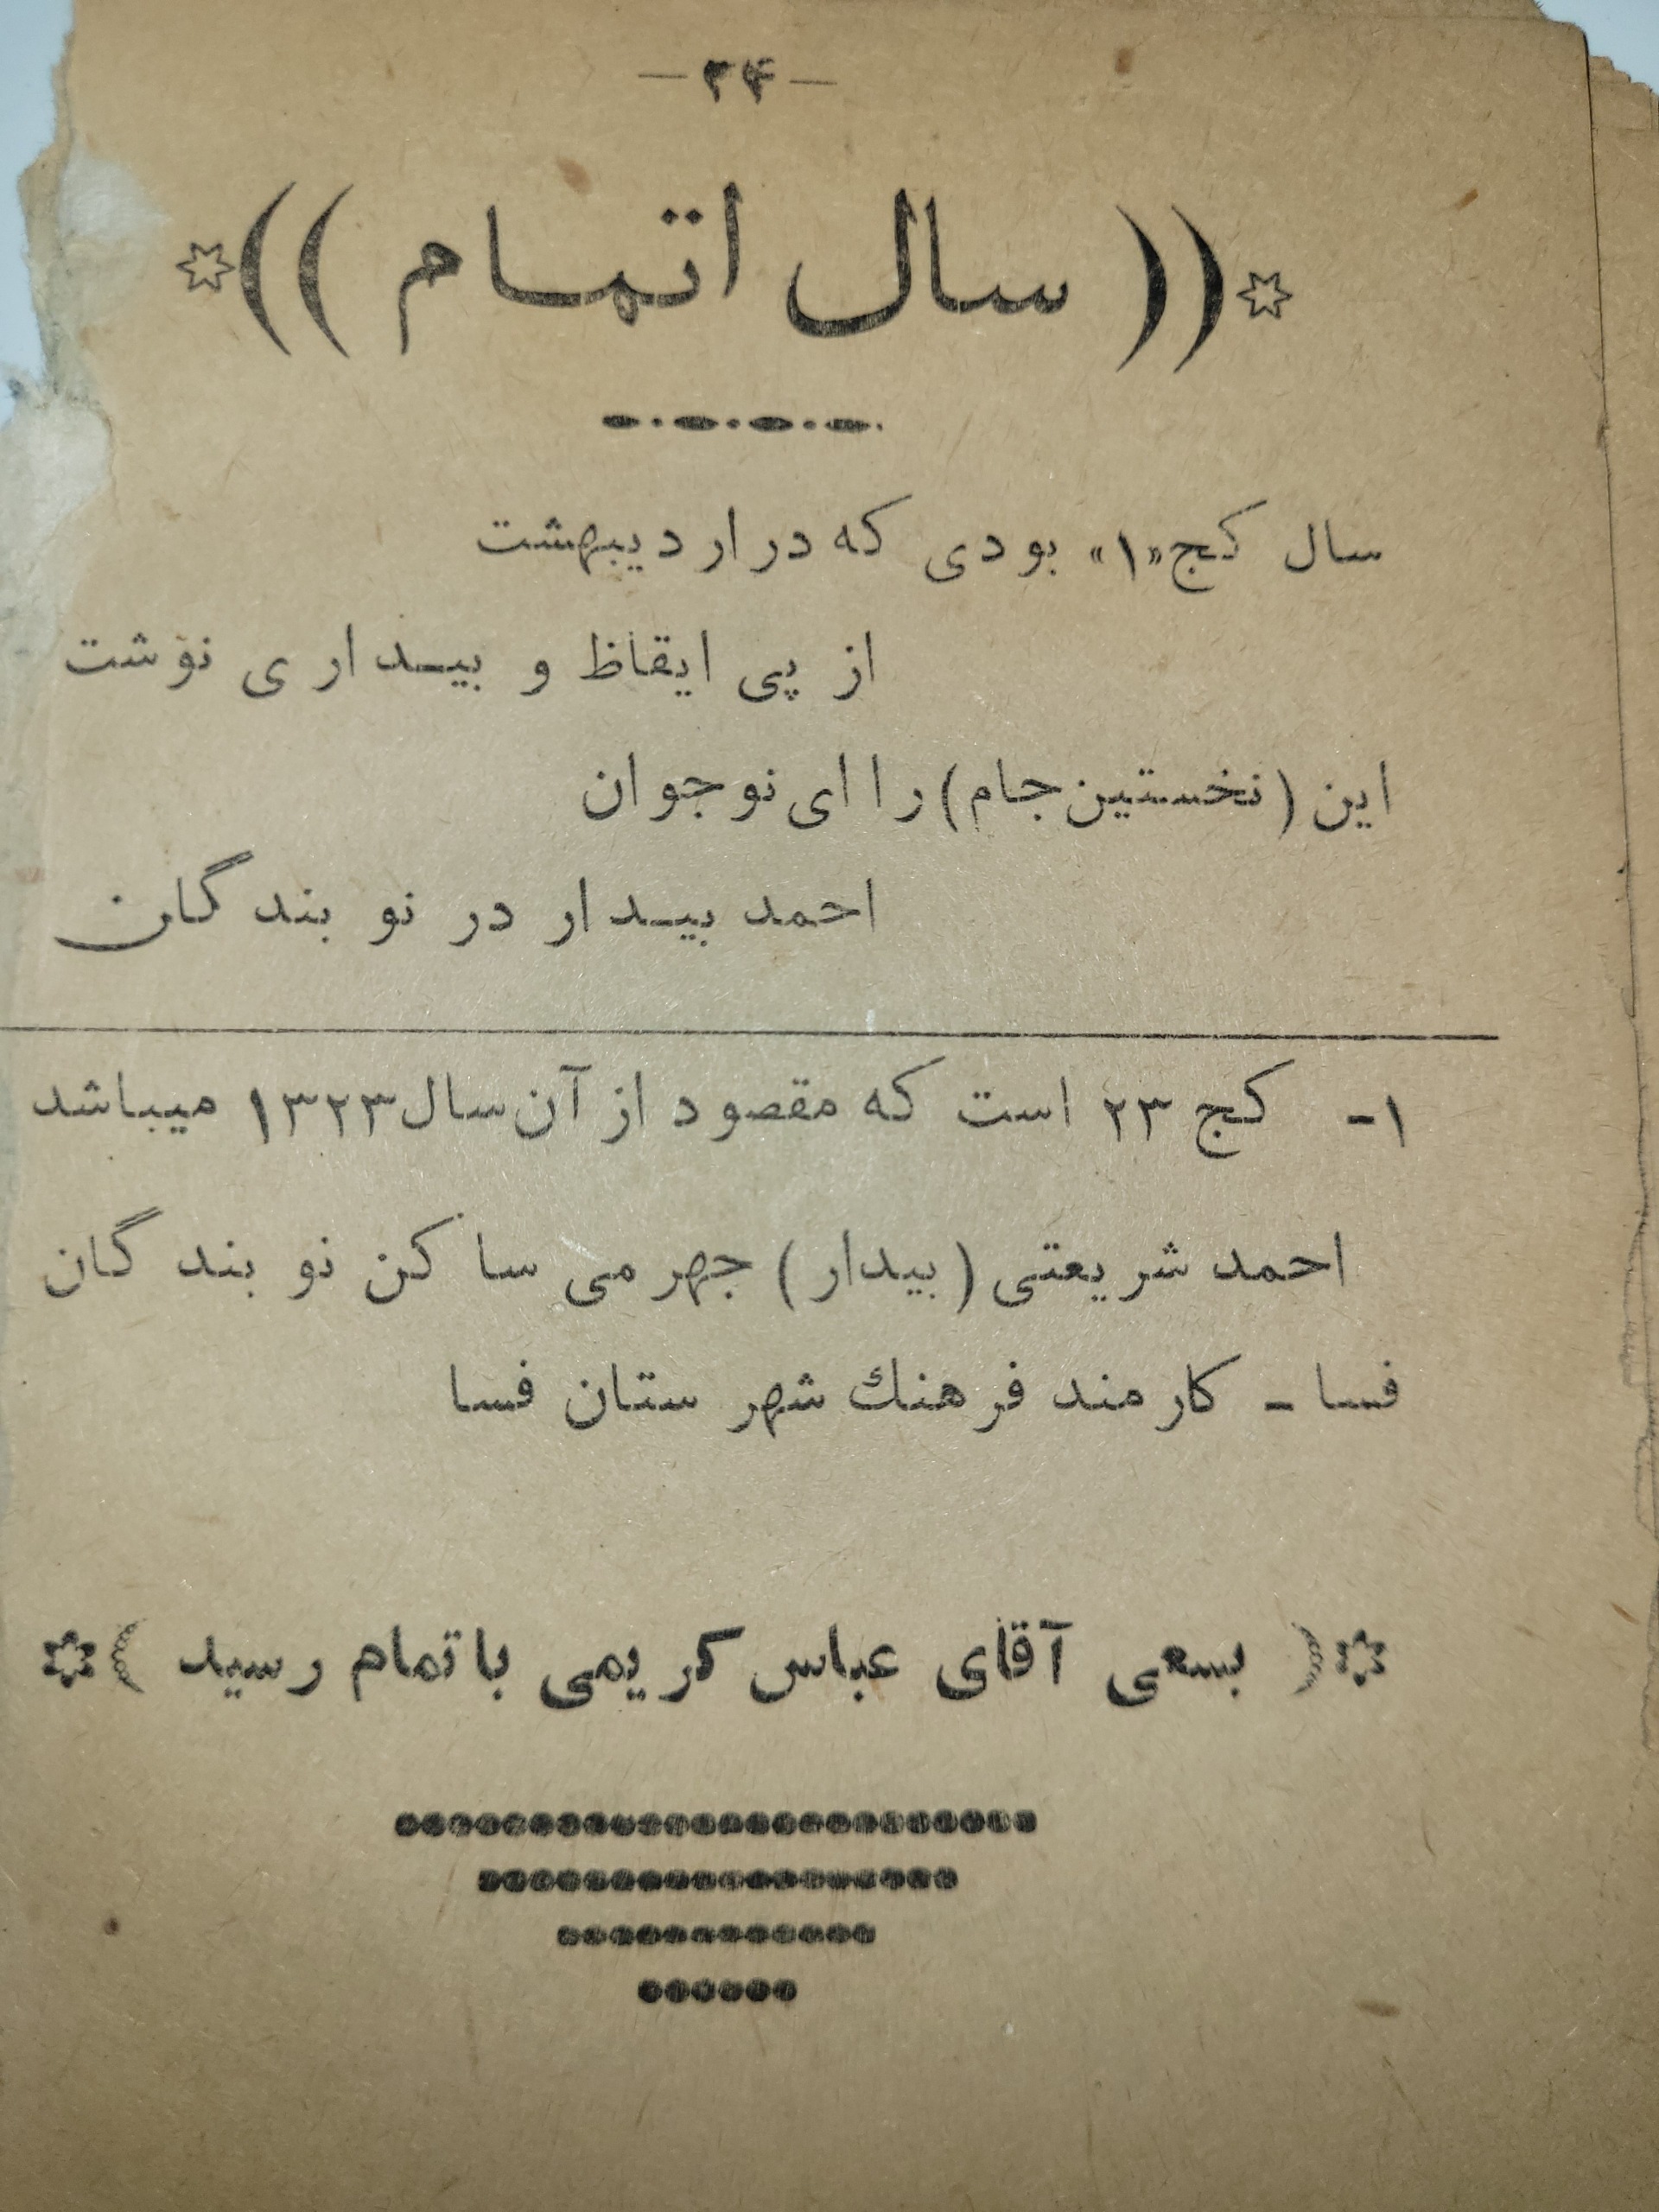 -۲۴-
(( سال اتمام ))
سال کج«۱» بودی که در اردیبهشت
از پی ایقاظ و بیداری نوشت
این (نخستین جام) را ای نوجوان
احمد بیدار در نوبندگان
۱- کج ۲۳ است که مقصود از آن سال ۱۳۲۳ میباشد
احمد شریعتی (بیدار) جهرمی ساکن نوبندگان
فسا - کارمند فرهنك شهرستان فسا
( بسعی آقای عباس کریمی باتمام رسید )